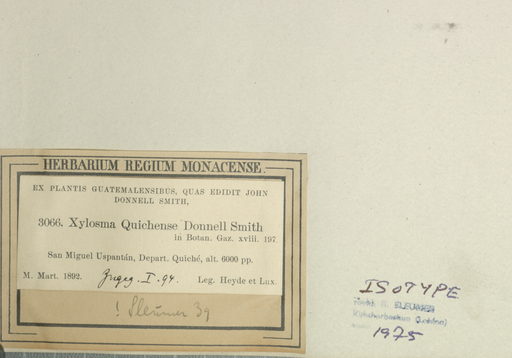 HERBARIUM REGIUM MONACENSE.
EX PLANTIS GUATEMALENSIBUS, QUAS EDIDIT JOHN
DONNELL SMITH,
3066. Xylosma Quichense Donnell Smith
in Botan. Gaz. xviii. 197
San Miguel Uspantán, Depart. Quiché, alt. 6000 pp.
M. Mart. 1892. Zugeg. I. 94. Leg. Heyde et Lux.
! Sleumer 39
ISOTYPE
Rijksherbarium (Leiden)
1975